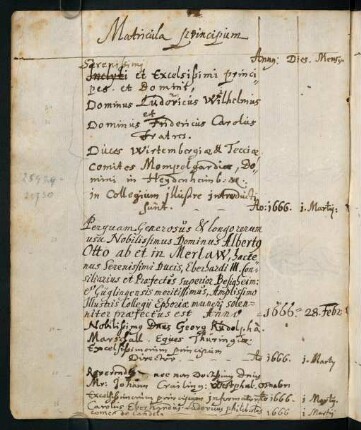 Matricula principum
Anny. Dies. Mensis
Serenissimi
Inclyti et Excelsissimi princi-
pes et Domini,
Dominus Ludovicus Wilhelmus
et
Dominus Fridericus Carolus
Fratres.
Duces Wirtembergiæ & Tecciæ
Comites Mompelgardiæ Do-
mini in Heydenheim &c.
in Collegium illustre introducti
sunt. Ao: 1666. 1. Martij:
Perquam Generosus & longo rerum
usu Nobilissimus Dominus Alberto
Otto ab et in Merlaw, hacte-
nus Serenissimi Ducis, Eberhardi III. Con-
siliarius et Præfectus Superior Besigheim:
et Güglingensis meritissimus, Amplissimo
Illustris Collegij Ephoriæ muneri solen-
niter præfectus est Anni 1666 28. Febr
Nobilissimg Dnus Georg Rudolph à
Marschall. Eques Thuringig
Excelsissimorum principum
Director. Ao 1666. 1. Martij
Reverendg nec non Doctissimg Dnus
Mr. Johann Westphal.
Excelsissimorum principum Informator Ao 1666. 1. Martij
Carolus Eberhardus
1666 1 Mart